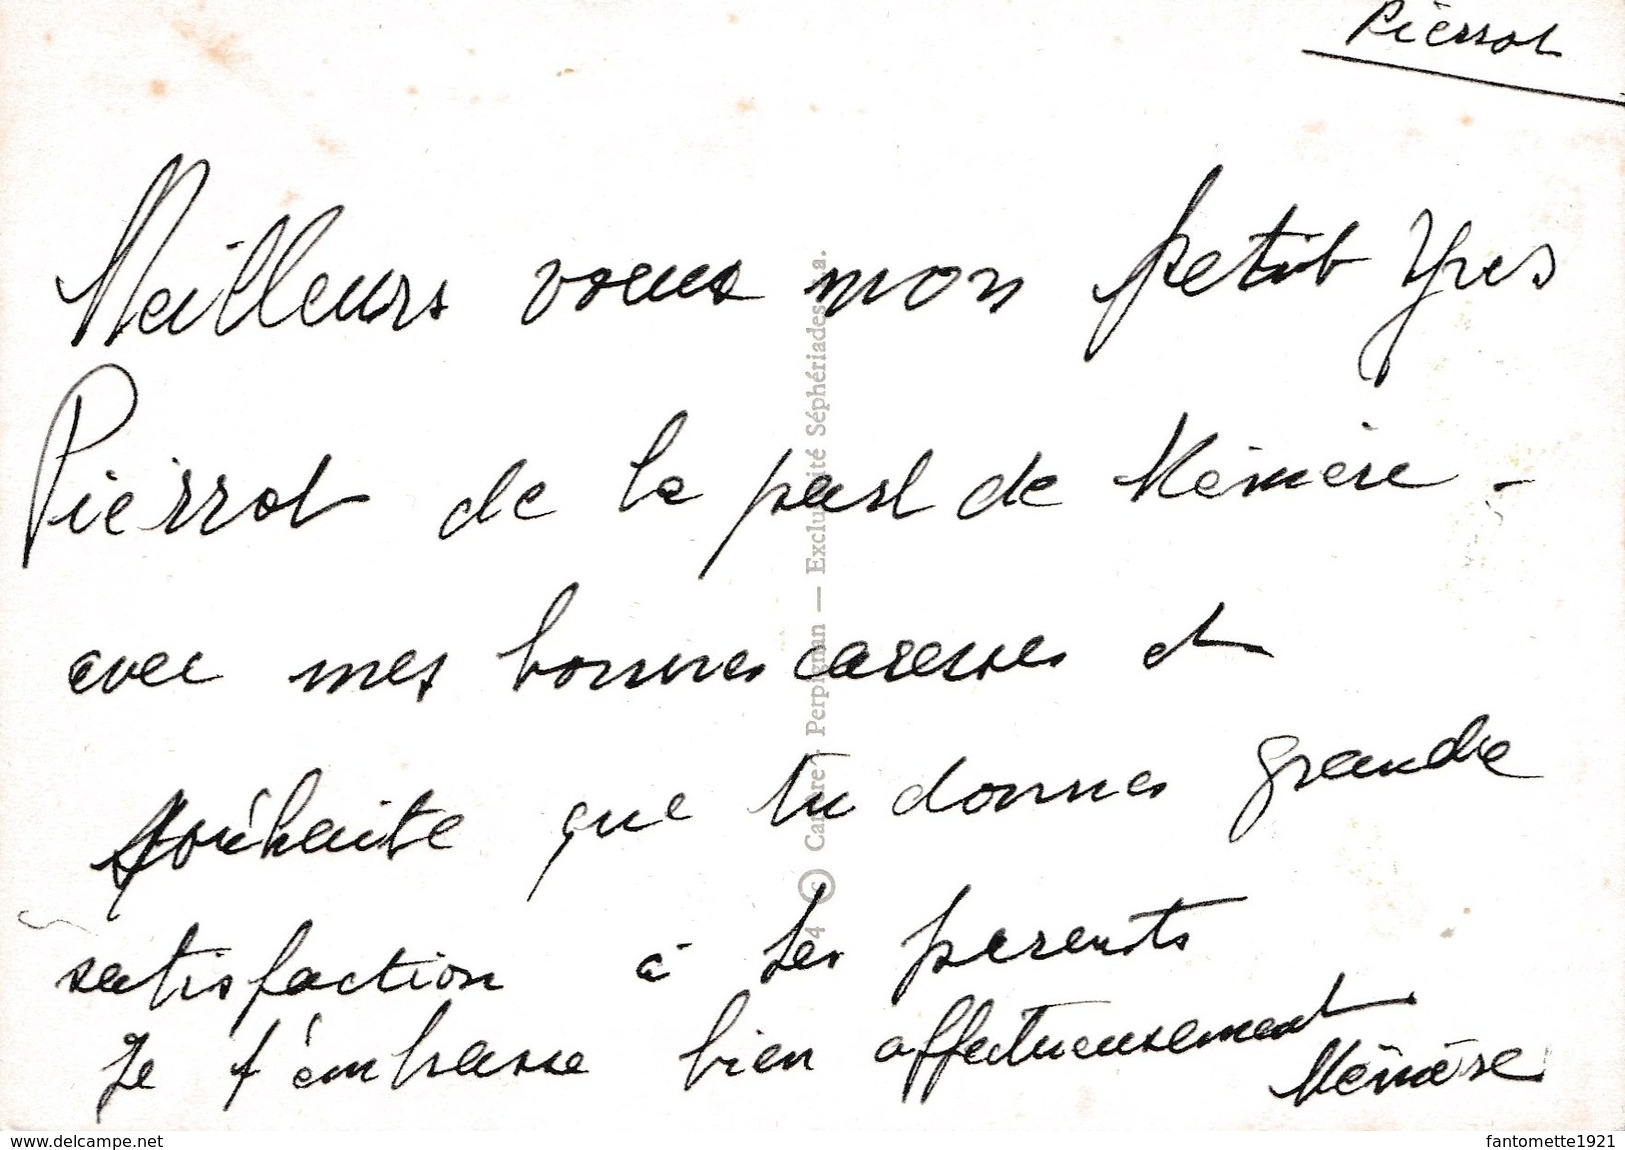 Pierrot
Meilleurs voeux mon petit Yves
Pierrot de la part de Mémère -
avec mes bonnes caresses et
souhaite que tu donnes grande
satisfaction à tes parents
Je t'embrasse bien affectueusement
Mémère
4 © Cap-Théojac Perpignan — Exclusivité Séphériades s.a.
www.delcampe.net
fantomette1921